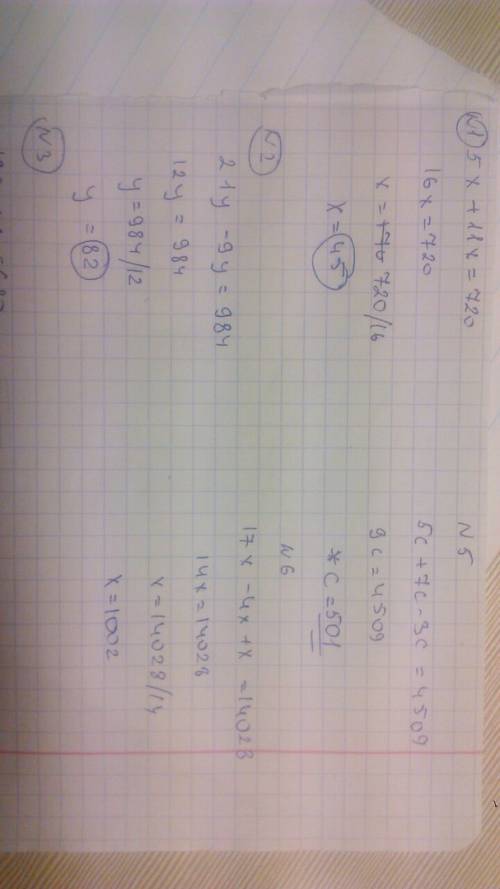 N1 5x + 11x = 720
16x = 720
x = 720/16
x = 45
N2
21y - 9y = 984
12y = 984
y = 984/12
y = 82
N3
N5
5c + 7c - 3c = 4509
9c = 4509
*c = 501
N6
17x - 4x + x = 14028
14x = 14028
x = 14028/14
x = 1002